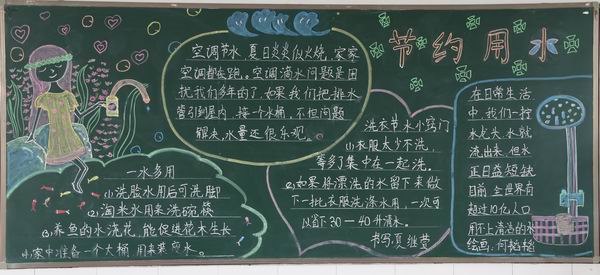 节约用水
空调节水，夏日炎炎似火烧，家家
空调都在跑。空调滴水问题是困
扰我们多年的了，如果我们把排水
管引到屋内，接一个水桶，不但问题
解决，水量还很乐观。
一水多用
(1)洗脸水用后可洗脚
(2)淘米水用来洗碗筷
(3)养鱼的水浇花，能促进花木生长
(4)家中准备一个大桶 用来装变水。
洗衣节水小窍门
(1)衣服太少不洗，
等多了集中在一起洗。
(2)如果将漂洗的水留下来做
下一批衣服洗涤水用，一次可
以省下30—40升清水。
书写：夏继萱
在日常生活
中，我们一拧
水龙头，水就
流出来，但水
正日益短缺
目前，全世界有
超过10亿人口
用不上清洁的水
绘画：何